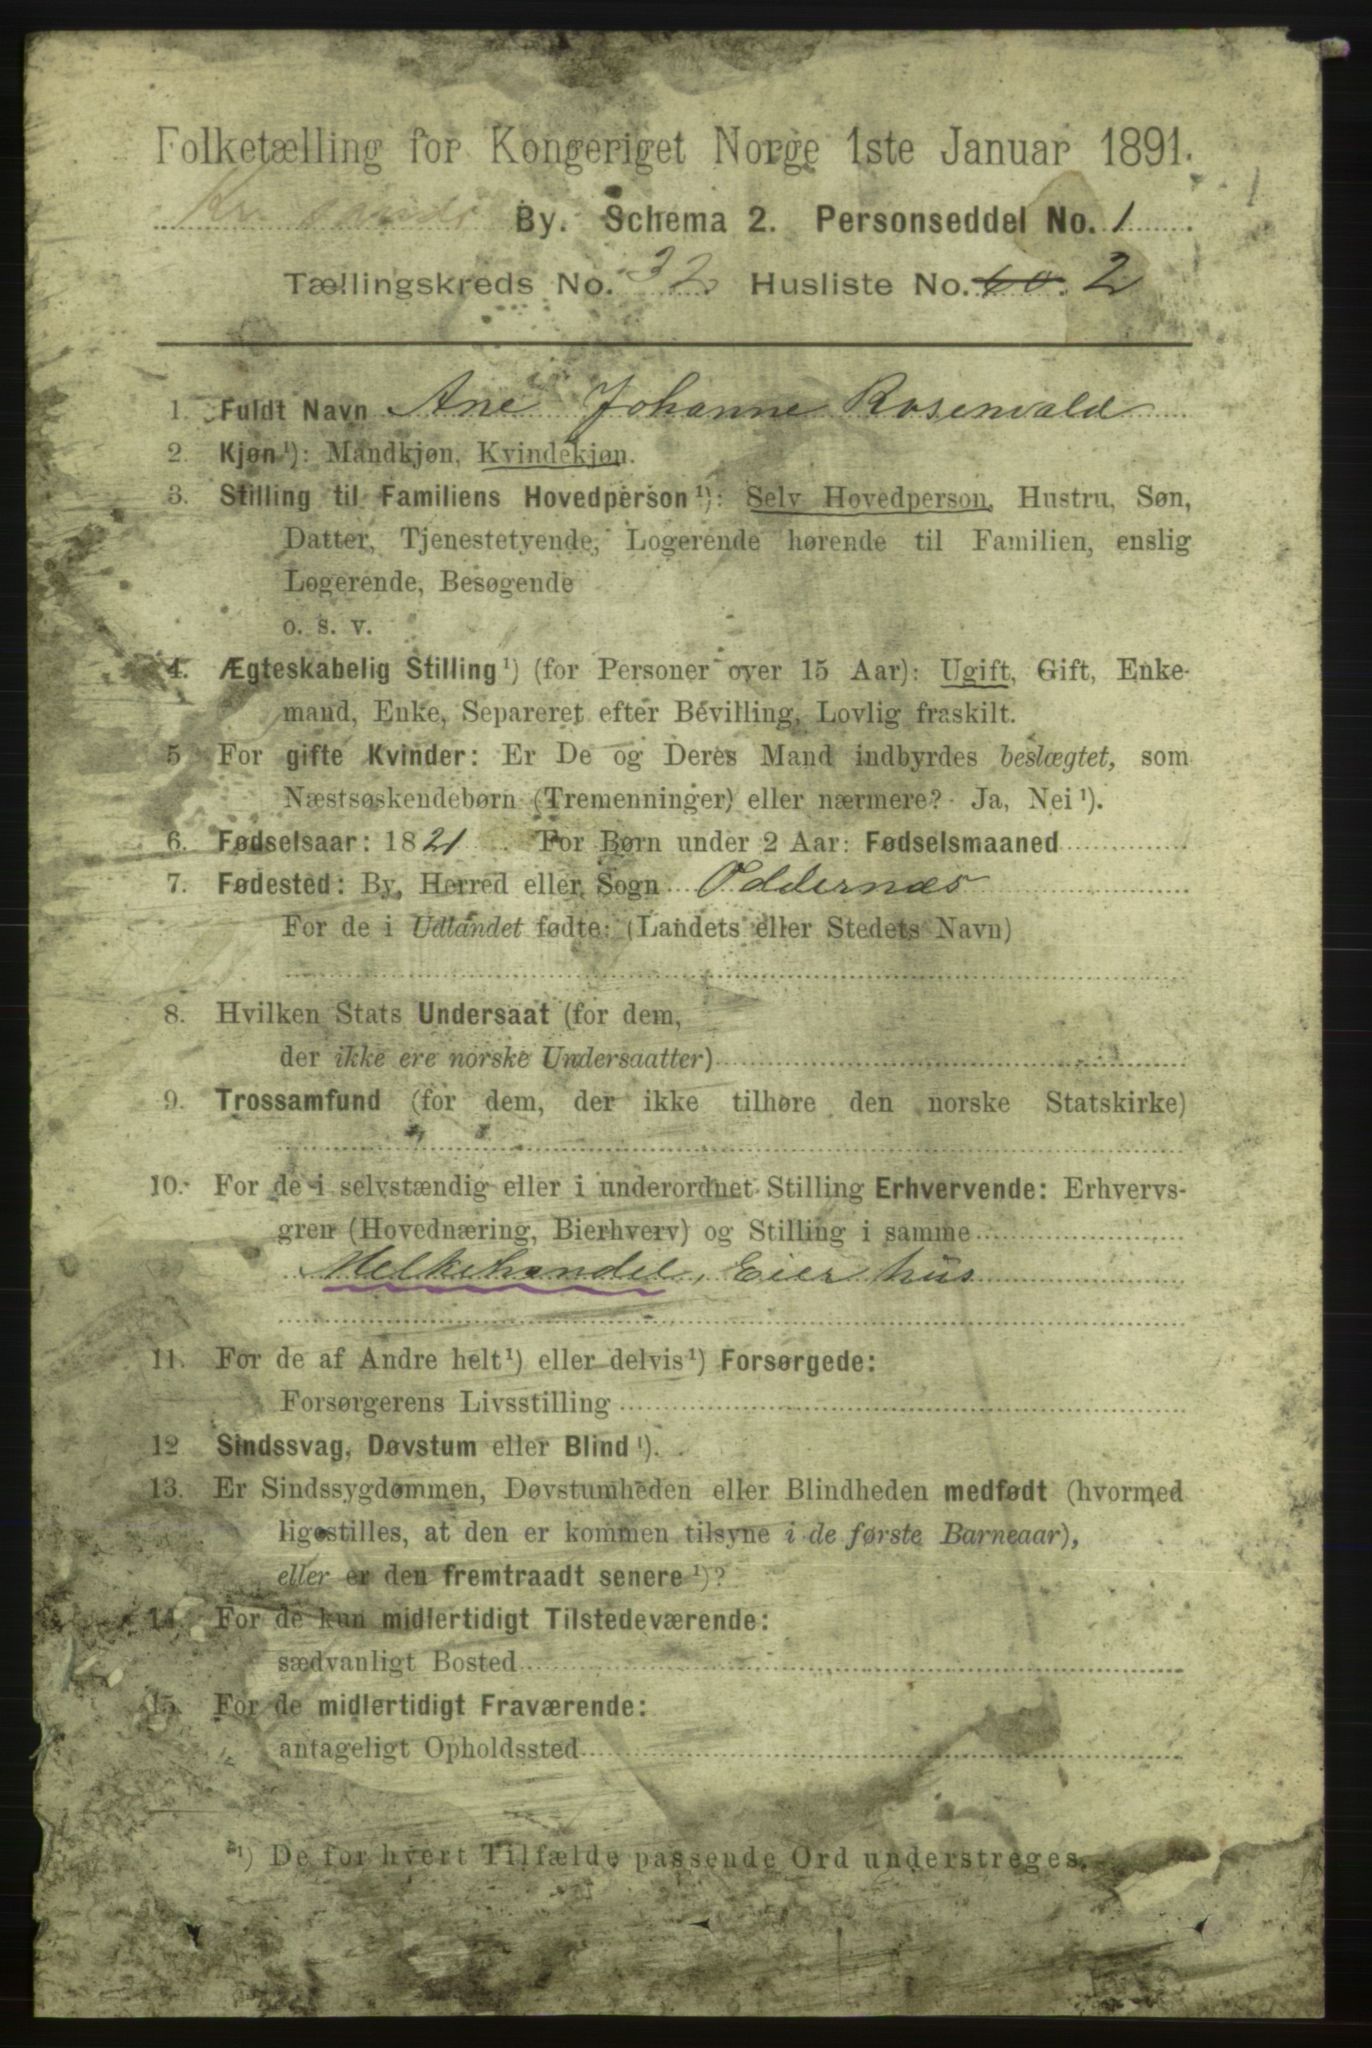 Folketælling for Kongeriget Norge 1ste Januar 1891.
By. Schema 2. Personseddel No. 1
Tællingskreds No. 32 Husliste No. 60. 2
1. Fuldt Navn Ane Johanne Rosenvald
2. Kjøn¹): Mandkjøn, Kvindekjøn.
3. Stilling til Familiens Hovedperson¹): Selv Hovedperson, Hustru, Søn,
Datter, Tjenestetyende, Logerende hørende til Familien, enslig
Logerende, Besøgende
o. s. v.
4. Ægteskabelig Stilling¹) (for Personer over 15 Aar): Ugift, Gift, Enke-
mand, Enke, Separeret efter Bevilling, Lovlig fraskilt.
5 For gifte Kvinder: Er De og Deres Mand indbyrdes beslægtet, som
Næstsøskendebørn (Tremenninger) eller nærmere? Ja, Nei¹).
6. Fødselsaar: 1821. For Børn under 2 Aar: Fødselsmaaned
7. Fødested: By, Herred eller Sogn Oddernæs
For de i Udlandet fødte: (Landets eller Stedets Navn)
8. Hvilken Stats Undersaat (for dem,
der ikke ere norske Undersaatter)
9. Trossamfund (for dem, der ikke tilhøre den norske Statskirke)
10. For de i selvstændig eller i underordnet Stilling Erhvervende: Erhvervs-
gren (Hovednæring, Bierhverv) og Stilling i samme
Melkehandel, Eier hus
11. For de af Andre helt¹) eller delvis¹) Forsørgede:
Forsørgerens Livsstilling
12 Sindssvag, Døvstum eller Blind¹).
13. Er Sindssygdommen, Døvstumheden eller Blindheden medfødt (hvormed
ligestilles, at den er kommen tilsyne i de første Barneaar),
eller er den fremtraadt senere¹)?
14. For de kun midlertidigt Tilstedeværende:
sædvanligt Bosted
15. For de midlertidigt Fraværende:
antageligt Opholdssted
¹) De for hvert Tilfælde passende Ord understreges.